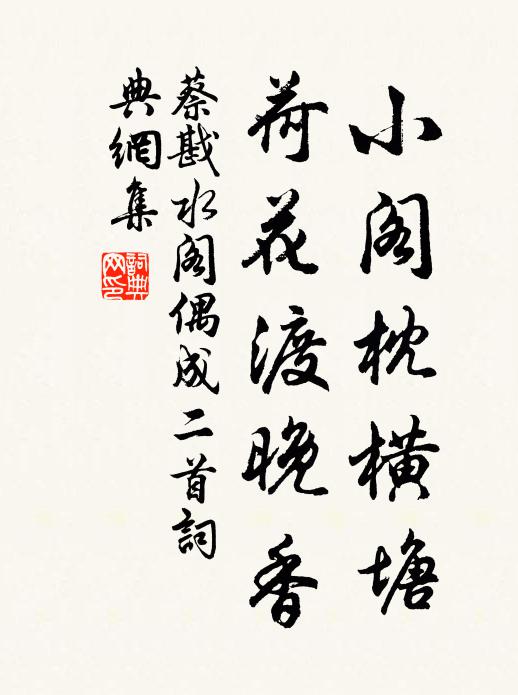 小阁枕横塘
荷花渡晚香
蔡戡水阁偶成二首詞
典網集
詞典网印